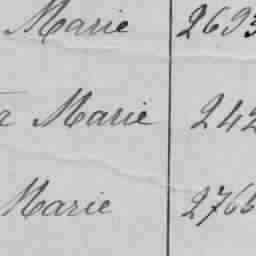 Marie 2693
Marie 242
Marie 2765